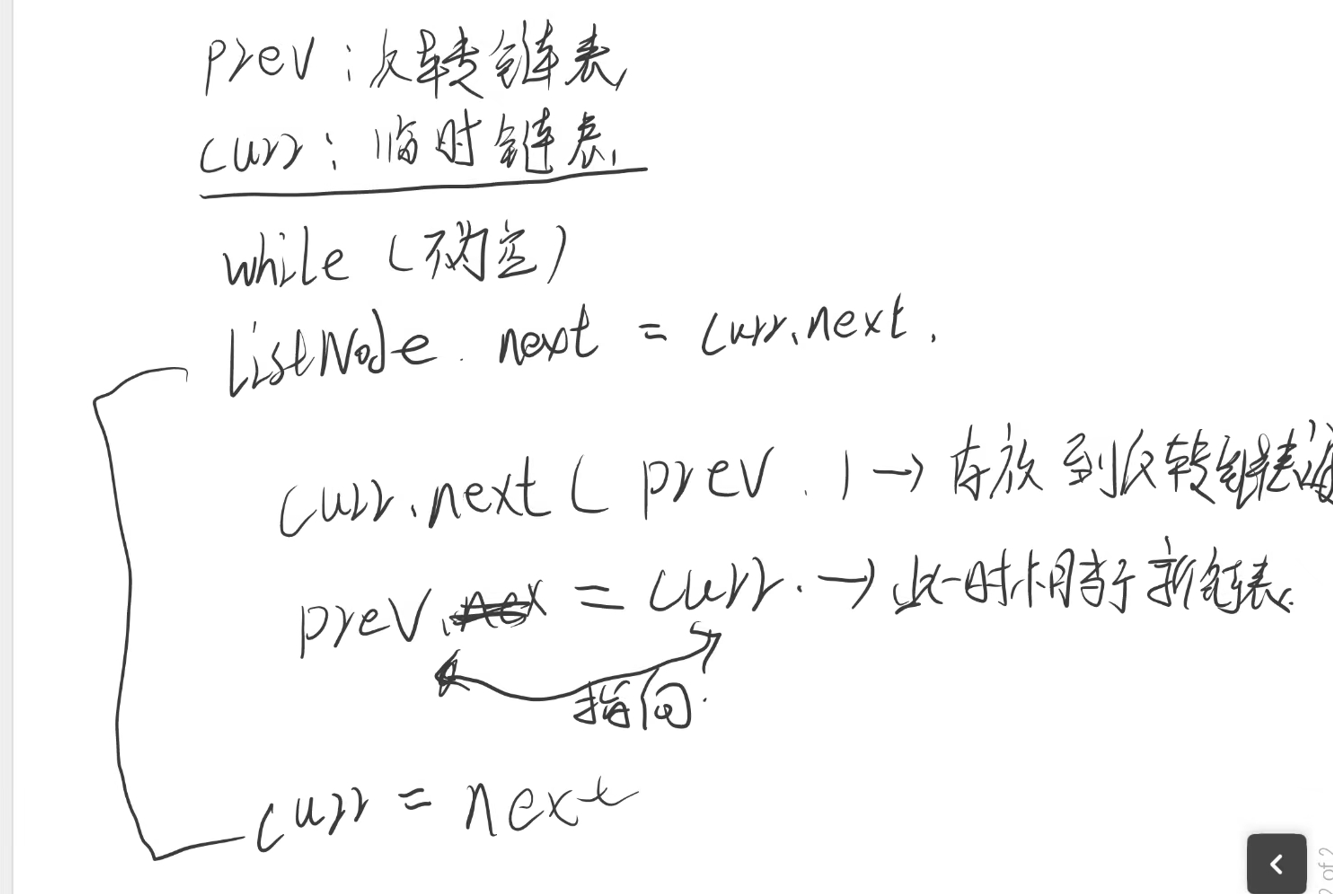 prev：反转链表
curr：临时链表
while（不为空）
ListNode. next = curr.next.
curr.next ( prev . ) → 存放到反转链表
prev. = curr. → 此时相当于新链表.
指向.
curr = next
2 of 2